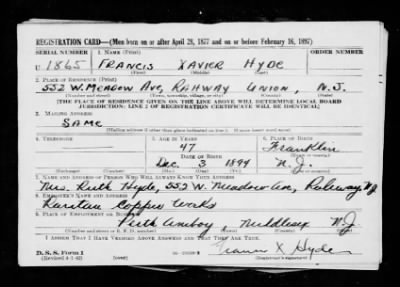 REGISTRATION CARD—(Men born on or after April 28, 1877 and on or before February 16, 1897)
SERIAL NUMBER 1. NAME (Print) ORDER NUMBER
U 1865 FRANCIS XAVIER HYDE
(First) (Middle) (Last)
2. PLACE OF RESIDENCE (Print)
552 W. MEADOW AVE, RAHWAY UNION, N.J.
(Number and street) (Town, township, village, or city) (County) (State)
[THE PLACE OF RESIDENCE GIVEN ON THE LINE ABOVE WILL DETERMINE LOCAL BOARD
JURISDICTION; LINE 2 OF REGISTRATION CERTIFICATE WILL BE IDENTICAL]
3. MAILING ADDRESS
SAME
(Mailing address if other than place indicated on line 2. If same insert word same)
4. TELEPHONE 5. AGE IN YEARS 6. PLACE OF BIRTH
47 Franklin
DATE OF BIRTH (Town or county)
Dec. 3 1894 N.J.
(Mo.) (Day) (Yr.) (State or country)
7. NAME AND ADDRESS OF PERSON WHO WILL ALWAYS KNOW YOUR ADDRESS
Mrs. Ruth Hyde, 552 W. Meadow Ave, Rahway NJ
8. EMPLOYER'S NAME AND ADDRESS
Raritan Copper Works
9. PLACE OF EMPLOYMENT OR BUSINESS
Perth Amboy, Middlesex N.J.
(Number and street or R. F. D. number) (Town) (County) (State)
I AFFIRM THAT I HAVE VERIFIED ABOVE ANSWERS AND THAT THEY ARE TRUE.
D. S. S. Form 1 Francis X Hyde
(Revised 4-1-42) (Registrant's signature)